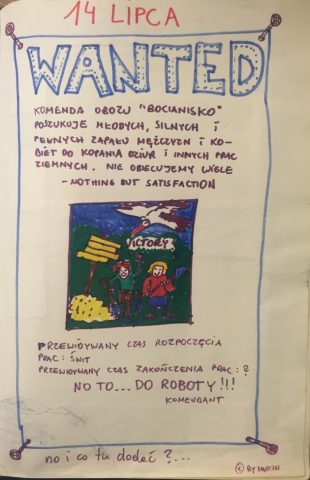 14 LIPCA
WANTED
KOMENDA OBOZU "BOCIANISKO"
POSZUKUJE MŁODYCH, SILNYCH I
PEŁNYCH ZAPAŁU MĘŻCZYZN I KO-
BIET DO KOPANIA DZIUR I INNYCH PRAC
ZIEMNYCH. NIE OBIECUJEMY WIELE
- NOTHING BUT SATISFACTION
VICTORY
PRZEWIDYWANY CZAS ROZPOCZĘCIA
PRAC: ŚWIT
PRZEWIDYWANY CZAS ZAKOŃCZENIA PRAC: ?
NO TO... DO ROBOTY!!!
KOMENDANT
no i co tu dodać?...
© BY MARCIN